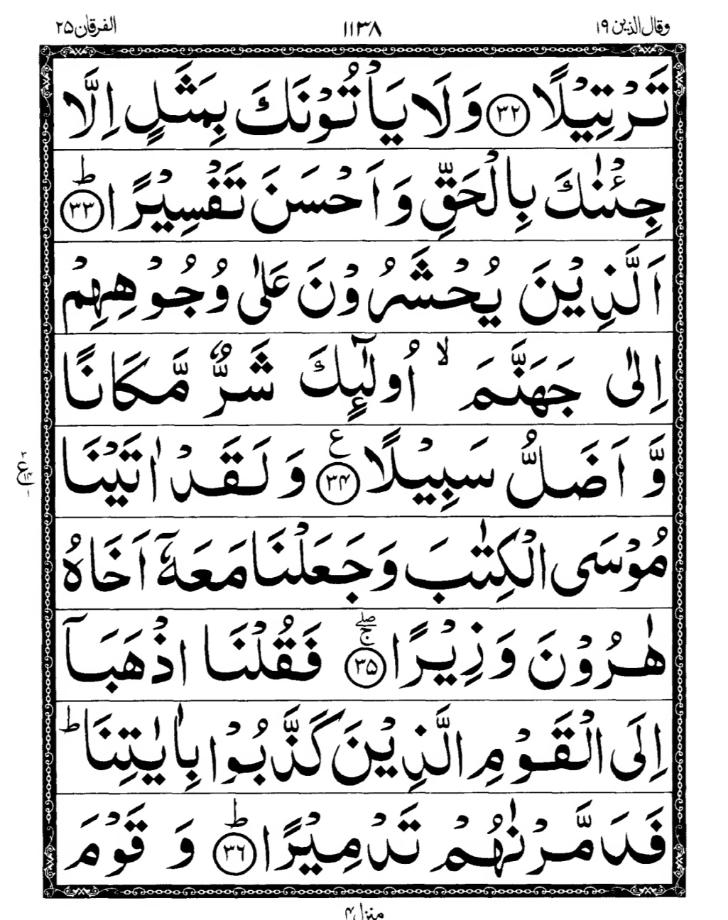 وقال الذين ۱۹ ۱۱۳۸ الفرقان ۲۵
تَرْتِيْلًا ﴿۳۲﴾ وَلَا يَاْتُوْنَكَ بِمَثَلٍ اِلَّا
جِئْنٰكَ بِالْحَقِّ وَاَحْسَنَ تَفْسِيْرًا ؕ﴿۳۳﴾
اَلَّذِيْنَ يُحْشَرُوْنَ عَلٰى وُجُوْهِهِمْ
اِلٰى جَهَنَّمَ ۙ اُولٰٓئِكَ شَرٌّ مَّكَانًا
وَّاَضَلُّ سَبِيْلًا ﴿۳۴﴾ ع وَلَقَدْ اٰتَيْنَا
مُوْسَى الْكِتٰبَ وَجَعَلْنَا مَعَهٗۤ اَخَاهُ
هٰرُوْنَ وَزِيْرًا ۖۚ﴿۳۵﴾ فَقُلْنَا اذْهَبَاۤ
اِلَى الْقَوْمِ الَّذِيْنَ كَذَّبُوْا بِاٰيٰتِنَا ؕ
فَدَمَّرْنٰهُمْ تَدْمِيْرًا ؕ﴿۳۶﴾ وَ قَوْمَ
منزل ۴